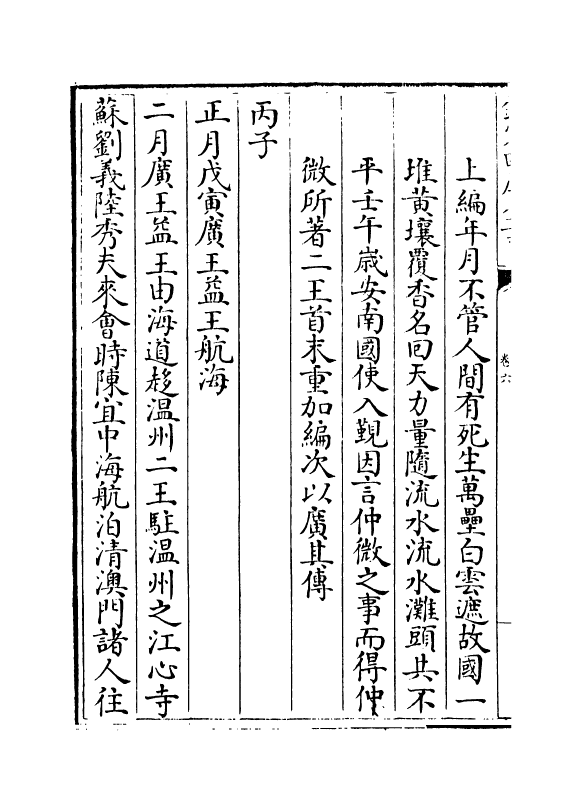 卷六
上編年月不管人間有死生萬壘白雲遮故國一
堆黃壤覆香名回天力量隨流水流水灘頭共不
平壬午嵗安南國使入覲因言仲微之事而得仲
微所著二王首末重加編次以廣其傳
丙子
正月戊寅廣王益王航海
二月廣王益王由海道趍温州二王駐温州之江心寺
蘇劉義陸秀夫來會時陳宜中海航泊清澳門諸人往